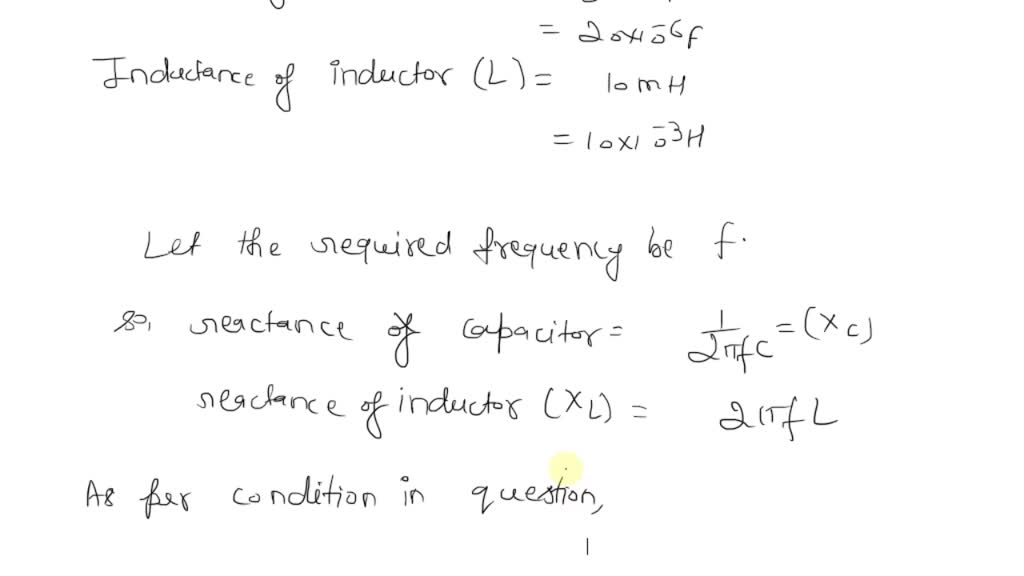 = 20×10⁻⁶f
Inductance of inductor (L) = 10mH
= 10×10⁻³H
Let the required frequency be f.
So, reactance of capacitor = 1/2πfC = (Xc)
reactance of inductor (XL) = 2πfL
As per condition in question,
1